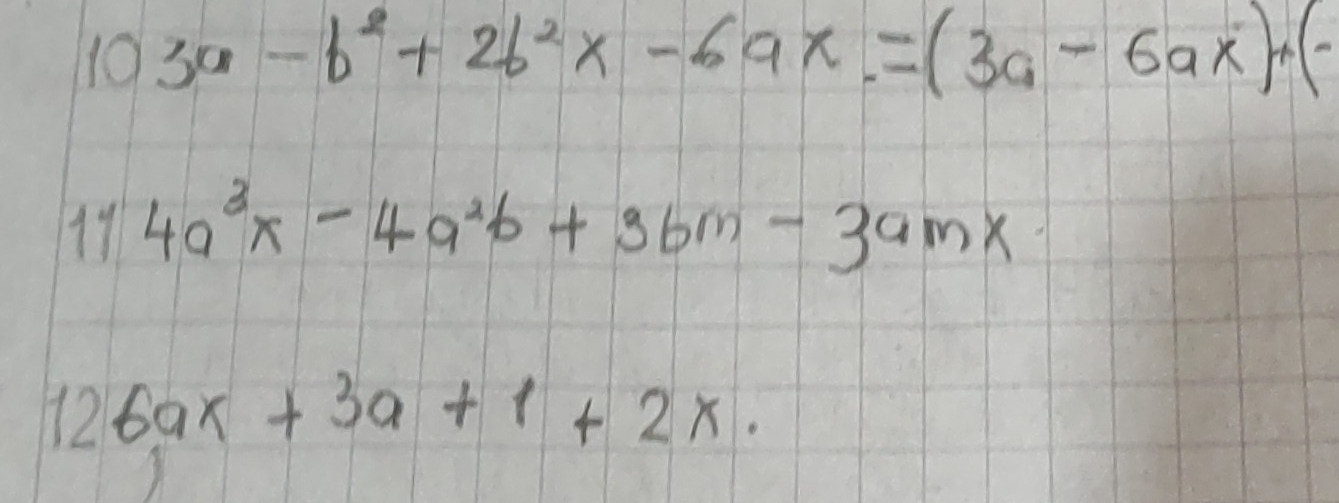 10 3a - b² + 2b²x - 6ax. = (3a - 6ax) + (-
11 4a³x - 4a²b + 3bm - 3amx.
12 6ax + 3a + 1 + 2x.